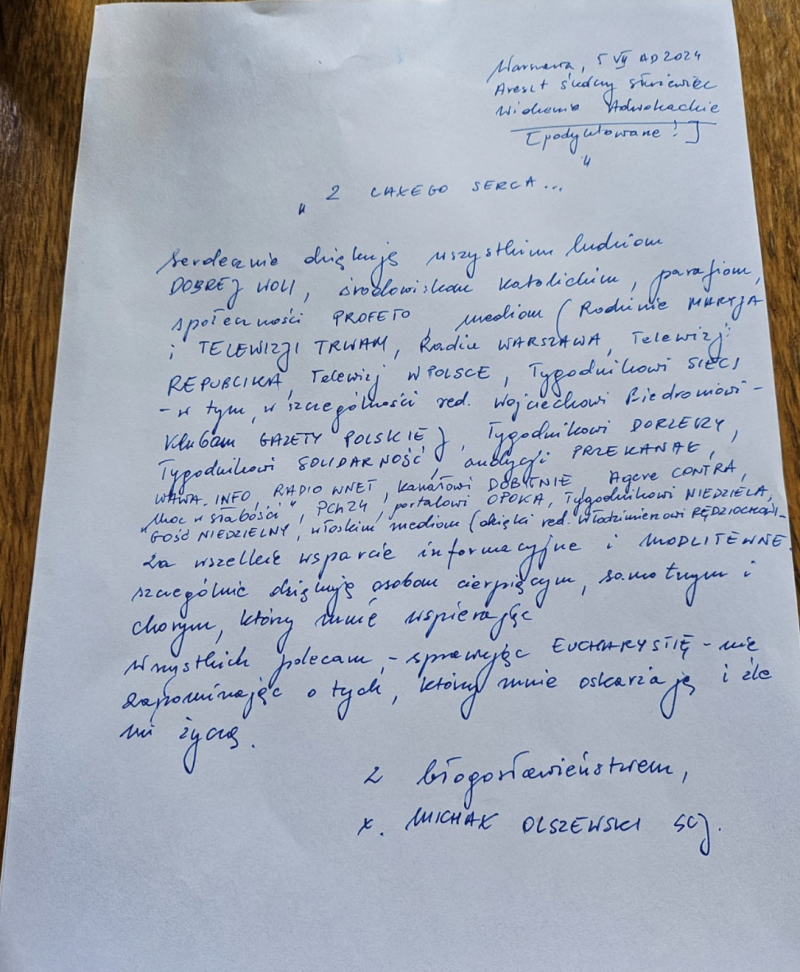 Warszawa, 5 VII AD 2024
Areszt śledczy Służewiec
Widzenie Adwokackie
[podyktowane!]
"
„ Z CAŁEGO SERCA...
Serdecznie dziękuję wszystkim ludziom
DOBREJ WOLI, środowiskom katolickim, parafiom,
społeczności PROFETO, mediom (Rodzinie MARYJA
i TELEWIZJI TRWAM, Radiu WARSZAWA, Telewizji
REPUBLIKA, Telewizj WPOLSCE, Tygodnikowi SIECI
- w tym, w szczególności red. Wojciechowi Biedroniowi -
Klubom GAZETY POLSKIEJ, Tygodnikowi DORZECZY,
Tygodnikowi SOLIDARNOŚĆ, audycji PRZEKANAŁ,
WAWA.INFO, RADIO WNET, kanałowi DOBITNIE, Agere CONTRA,
"Moc w słabości", PCh24, portalowi OPOKA, Tygodnikowi NIEDZIELA,
GOŚĆ NIEDZIELNY, włoskim mediom (dzięki red. Włodzimierzowi RĘDZIOCHOWI-
Za wszelkie wsparcie informacyjne i MODLITEWNE.
szczególnie dziękuję osobom cierpiącym, samotnym i
chorym, którzy mnie wspierają
Wszystkich polecam, - sprawując EUCHARYSTIĘ - nie
zapominając o tych, którzy mnie oskarżają i źle
mi życzą.
Z błogosławieństwem,
x. MICHAŁ OLSZEWSKI SCJ.